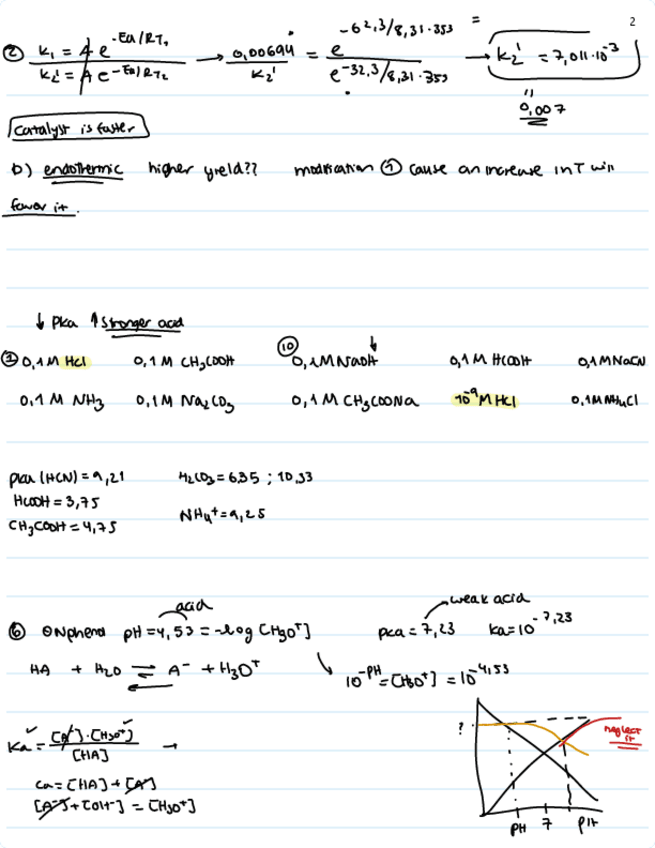 2
② k₁ = A e^-Ea/RT₁ / k₂' = A e^-Ea/RT₂ → 0,00694 / k₂' = e^-62,3/8,31·353 / e^-32,3/8,31·353 → k₂' = 7,011·10⁻³
=
0,007
Catalyst is faster
b) endothermic higher yield?? modification ① cause an increase in T will
favor it.
↓ pka ↑ stronger acid
③ 0,1 M HCl 0,1 M CH₃COOH ⑩ 0,1M NaOH ↓ 0,1 M HCOOH 0,1M NaCN
0,1 M NH₃ 0,1 M Na₂CO₃ 0,1 M CH₃COONa 10⁻⁹ M HCl 0,1M NH₄Cl
pka (HCN) = 9,21 H₂CO₃ = 6,35 ; 10,33
HCOOH = 3,75
CH₃COOH = 4,75 NH₄⁺ = 9,25
acid weak acid
⑥ pH = 4,53 = -log [H₃O⁺] pka = 7,23 ka = 10^-7,23
HA + H₂O ⇌ A⁻ + H₃O⁺ ↘ 10^-pH = [H₃O⁺] = 10^-4,53
Ka = [A⁻]·[H₃O⁺] / [HA] →
Ca = [HA] + [A⁻]
[A⁻] + [OH⁻] = [H₃O⁺]
?
neglect
it
pH 7 pH